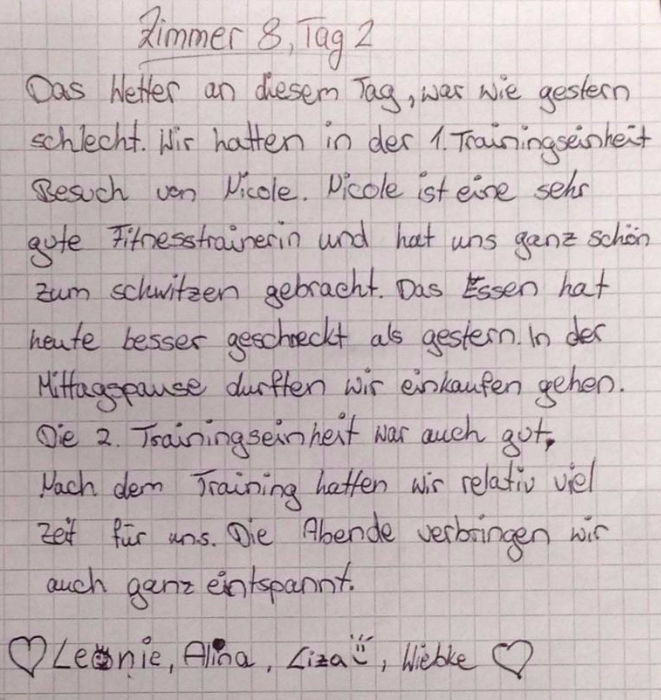 Zimmer 8, Tag 2
Das Wetter an diesem Tag, war wie gestern
schlecht. Wir hatten in der 1. Trainingseinheit
Besuch von Nicole. Nicole ist eine sehr
gute Fitnesstrainerin und hat uns ganz schön
zum schwitzen gebracht. Das Essen hat
heute besser geschmeckt als gestern. In der
Mittagspause durften wir einkaufen gehen.
Die 2. Trainingseinheit war auch gut,
Nach dem Training hatten wir relativ viel
Zeit für uns. Die Abende verbringen wir
auch ganz entspannt.
♡ Leonie, Alina, Liza, Wiebke ♡